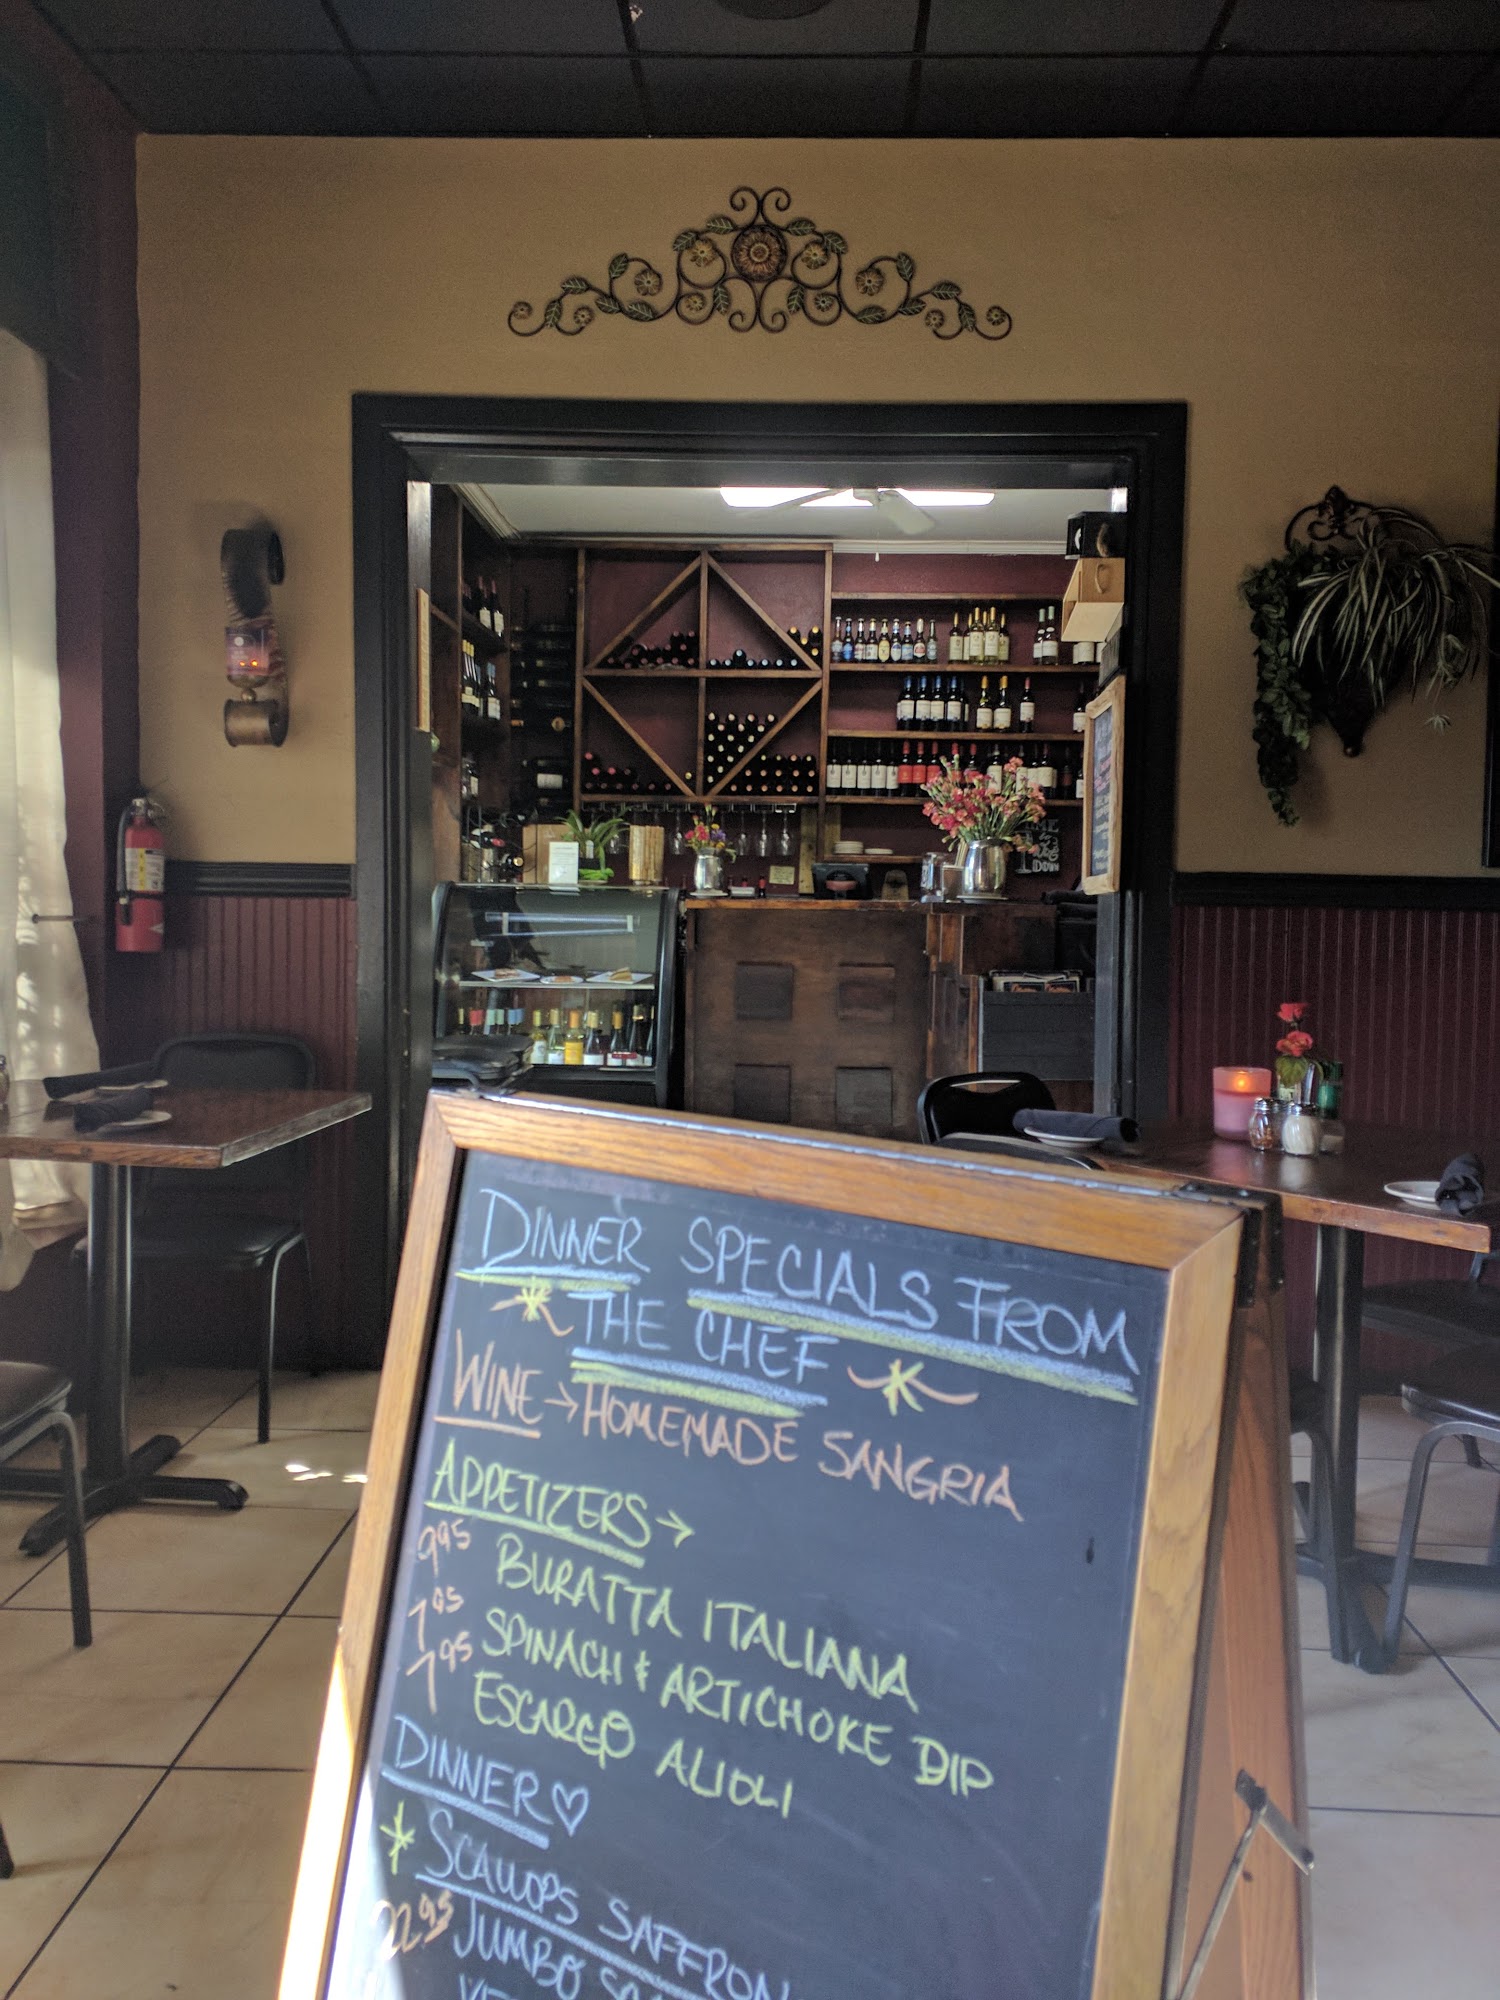 DINNER SPECIALS FROM
THE CHEF
WINE → HOMEMADE SANGRIA
APPETIZERS →
9.95 BURATTA ITALIANA
7.95 SPINACH & ARTICHOKE DIP
7.95 ESCARGO ALIOLI
DINNER ♡
SCALLOPS SAFFRON
22.95 JUMBO